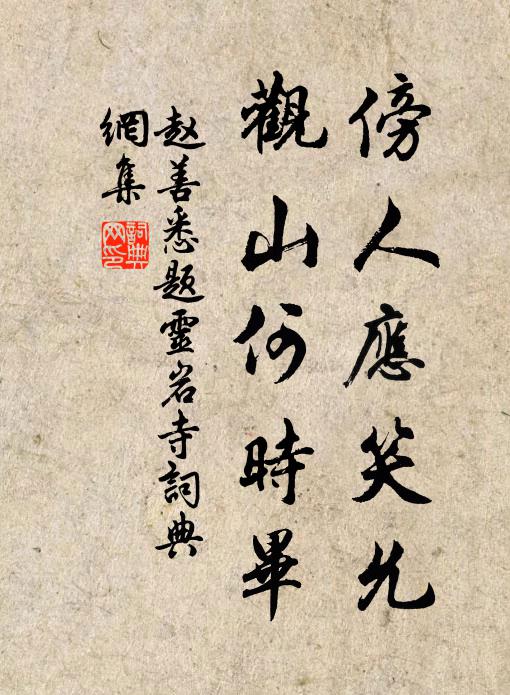 傍人應笑允
觀山何時畢
赵善悉題靈岩寺詞典
網集
詞典网印